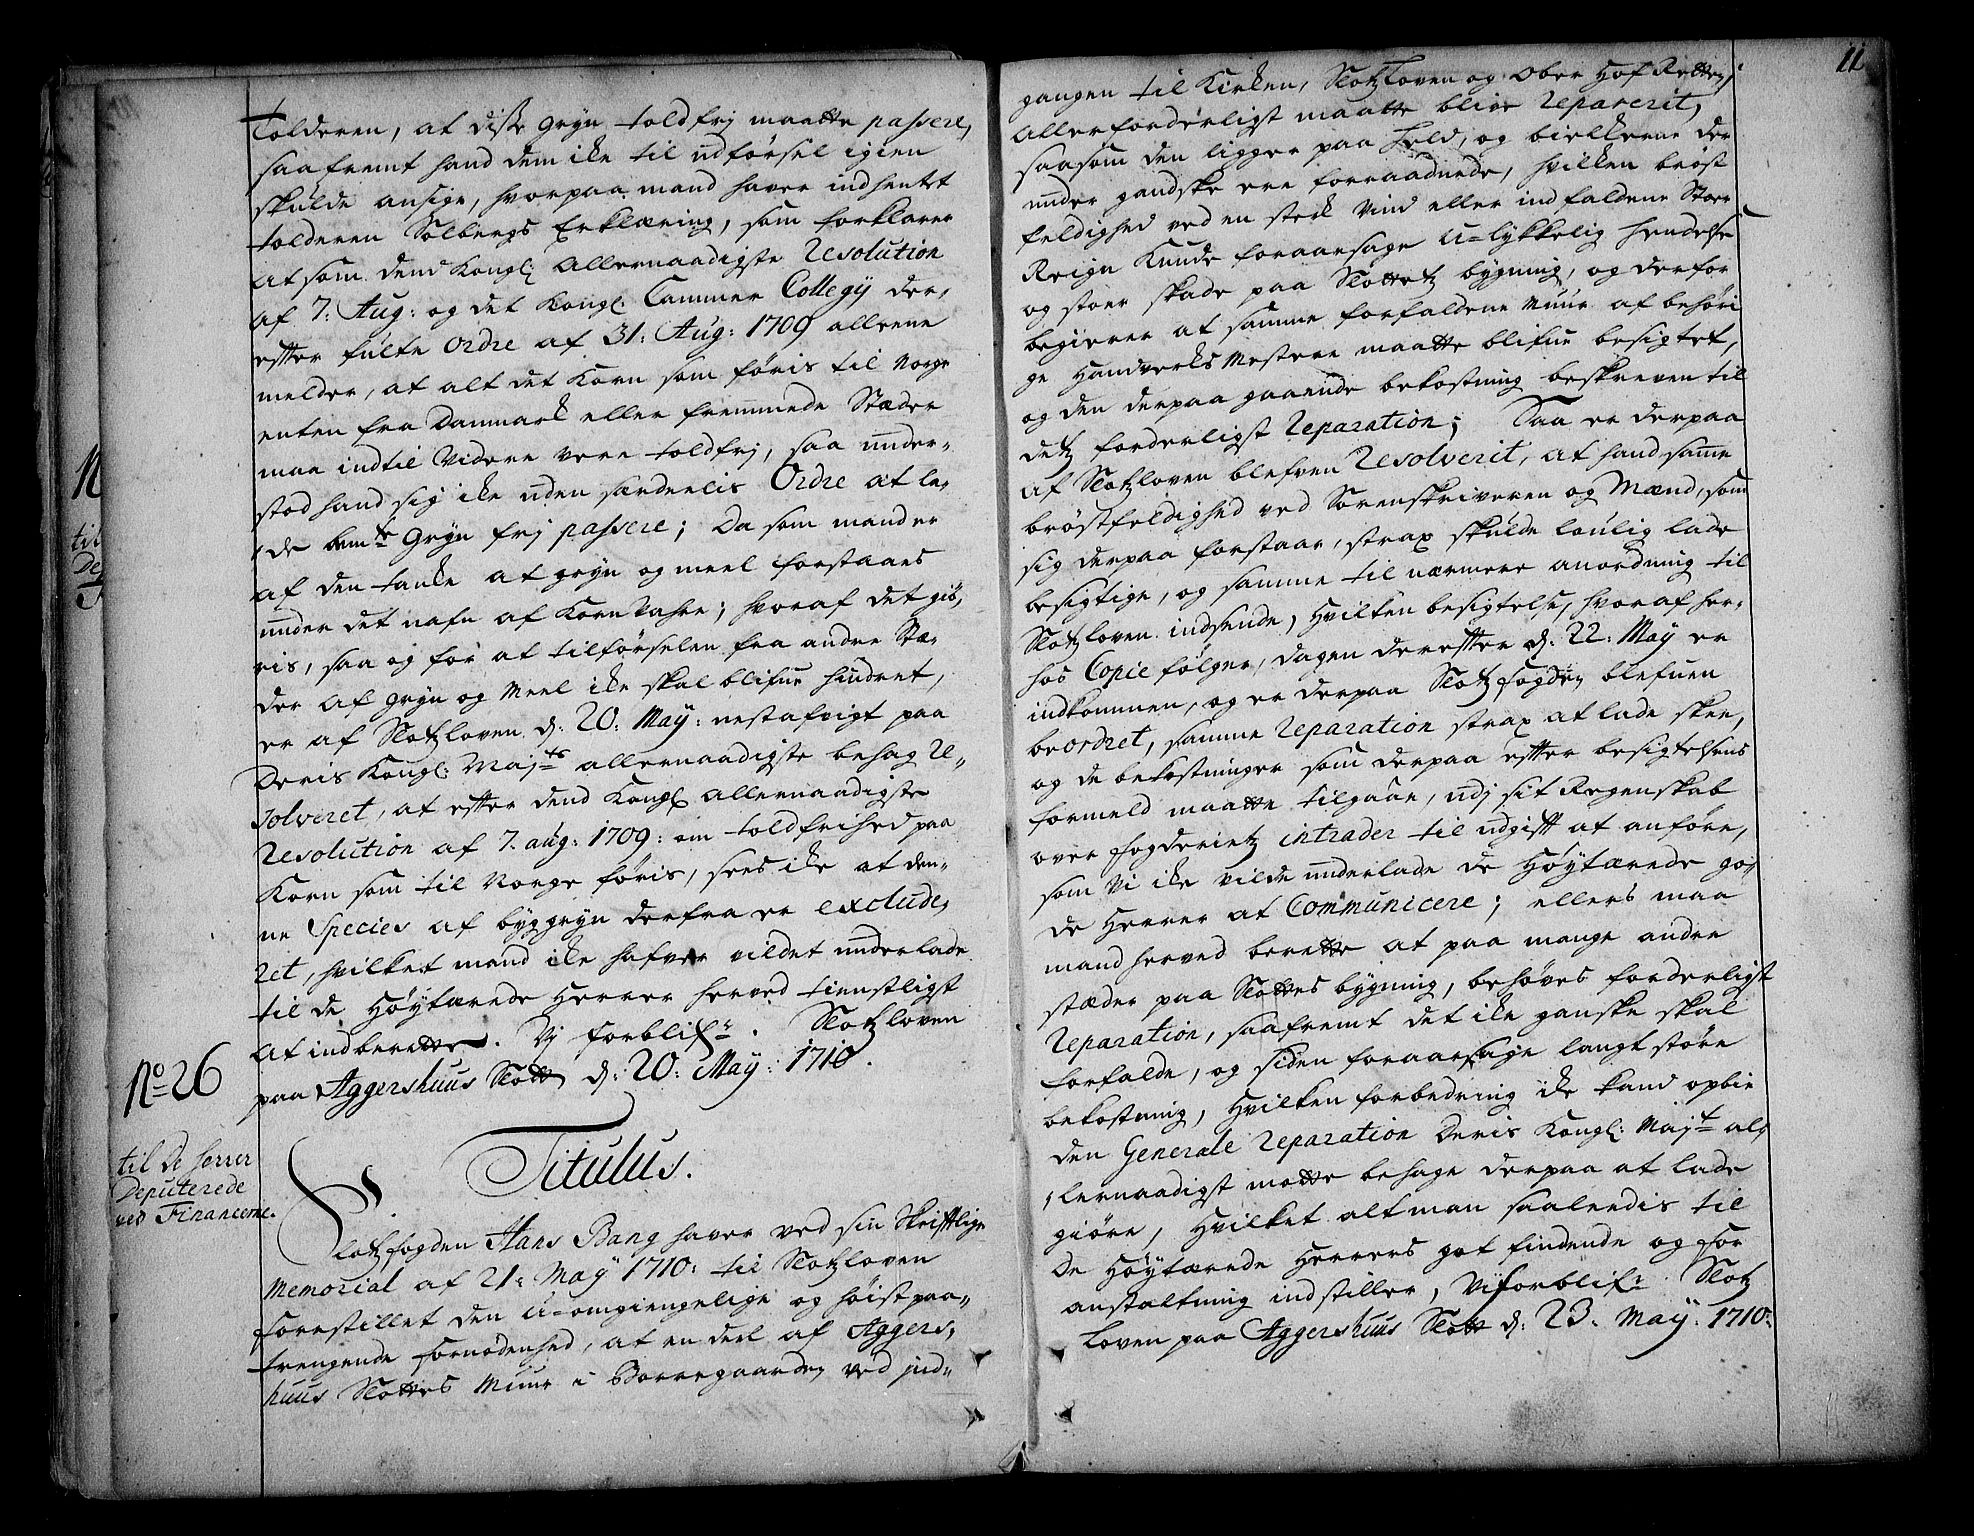 Tolderen, at disse gryn toldfrj maatte passere,
saafremt hand dem icke til udførsel igien
skulde ansige, hvorpaa mand haver indhentet
tolderen Solbergs Erklæring, som forklarer
at som dend Kongl: Allernaadigste Resolution
af 7: Aug: og det Kongl: Cammer Collegÿ der,
efter fulte Ordre af 31: Aug: 1709 alleene
melder, at alt det Korn som føris til Norge
enten fra Danmarck eller fremmede Stæder
maa indtil Videre vere toldfrj, saa under-
stod hand sig icke uden særdeelis Ordre at la-
de bemte Gryn frj passere; Da som mand er
af den tancke at gryn og meel forstaaes
under det nafn af Kornvahre; hvoraf det giø,
ris, saa og for at tilførselen fra andre Stæ-
der af gryn og Meel icke skal blifve hindret,
er af Slotzloven d: 20: Maÿ: nestafvigt paa
Deris Kongl: Majts allernaadigste behag Re-
solveret, at efter dend Kongl allernaadigste
Resolution af 7. aug: 1709: om toldfrihed paa
Korn som til Norge føris, sees icke at den-
ne Species af byggryn derfra er exclude,
ret, hvilket mand icke hafver vildet underlade
til de Høytærede Herrer herved tienstligst
at indberette. Vj forblifr. Slotzloven
paa Aggershuus Slott d: 20: Maÿ: 1710.
No 26
til De herrer
Deputerede
ved Financerne.
Titulus.
Slotzfogden Hans Bang haver ved sin Skrifftlige
Memorial af 21: Maÿ 1710: til Slotzloven
forestillet den u=omgiengelige og høist paa-
trengende fornødenhed, at en deel af Aggers,
huus Slottes Muur i Borregaarden ved jnd-
11
gangen til Kircken, Slotzloven og Ober Hof Retten,
allerforderligst maatte blive Reparerit,
saasom den ligger paa held, og bielckerne der
under gandske ere forraadnede, hvilken brøst
feldighed ved en sterck Vind eller indfaldene Stoer
Reign Kunde foraarsage U=lykkelig hendelse
og stoer skade paa Slottetz bygning, og derfor
begierer at samme forfaldene Muur af behøri
ge Handvercks Mestere maatte blifve besigtet,
og den derpaa gaaende bekostning beskreven til
detz forderligst Reparation; Saa er derpaa
af Slotzloven blefven Resolverit, at hand samme
brøstfeldighed ved Sorenskriveren og Mænd, som
sig derpaa forstaar, strax skulde loulig lade
besigtige, og samme til nærmere anordning til
Slotzloven indsende, Hvilken besigtelse, hvoraf her-
hos Copie følger, dagen derefter d: 22: Maÿ er
indkommen, og er derpaa Slotzfogden blefven
beordret, samme Reparation strax at lade skee,
og de bekostninger som derpaa efter besigtelsens
formeld maatte tilgaae, udj sit Regenskab
over fogderietz intrader til udgift at anføre,
som Vi icke vilde underlade de Høytærede go-
de Herrer at Communicere; ellers maa
mand herved berette at paa mange andre
stæder paa Slottes bygning, behøves forderligst
Reparation, saafremt det icke ganske skal
forfalde, og siden foraarsage langt større
bekostning, Hvilken forbedring icke kand opbie
den Generale Reparation Deris Kongl: Majt al,
lernaadigst motte behage derpaa at lade
giøre, Hvilket alt man saaledis til
De Høytærede Herrers got findende og for
anstaltning indstiller, Vi forblifr. Slotz
Loven paa Aggershuus Slott d: 23. Maÿ: 1710: